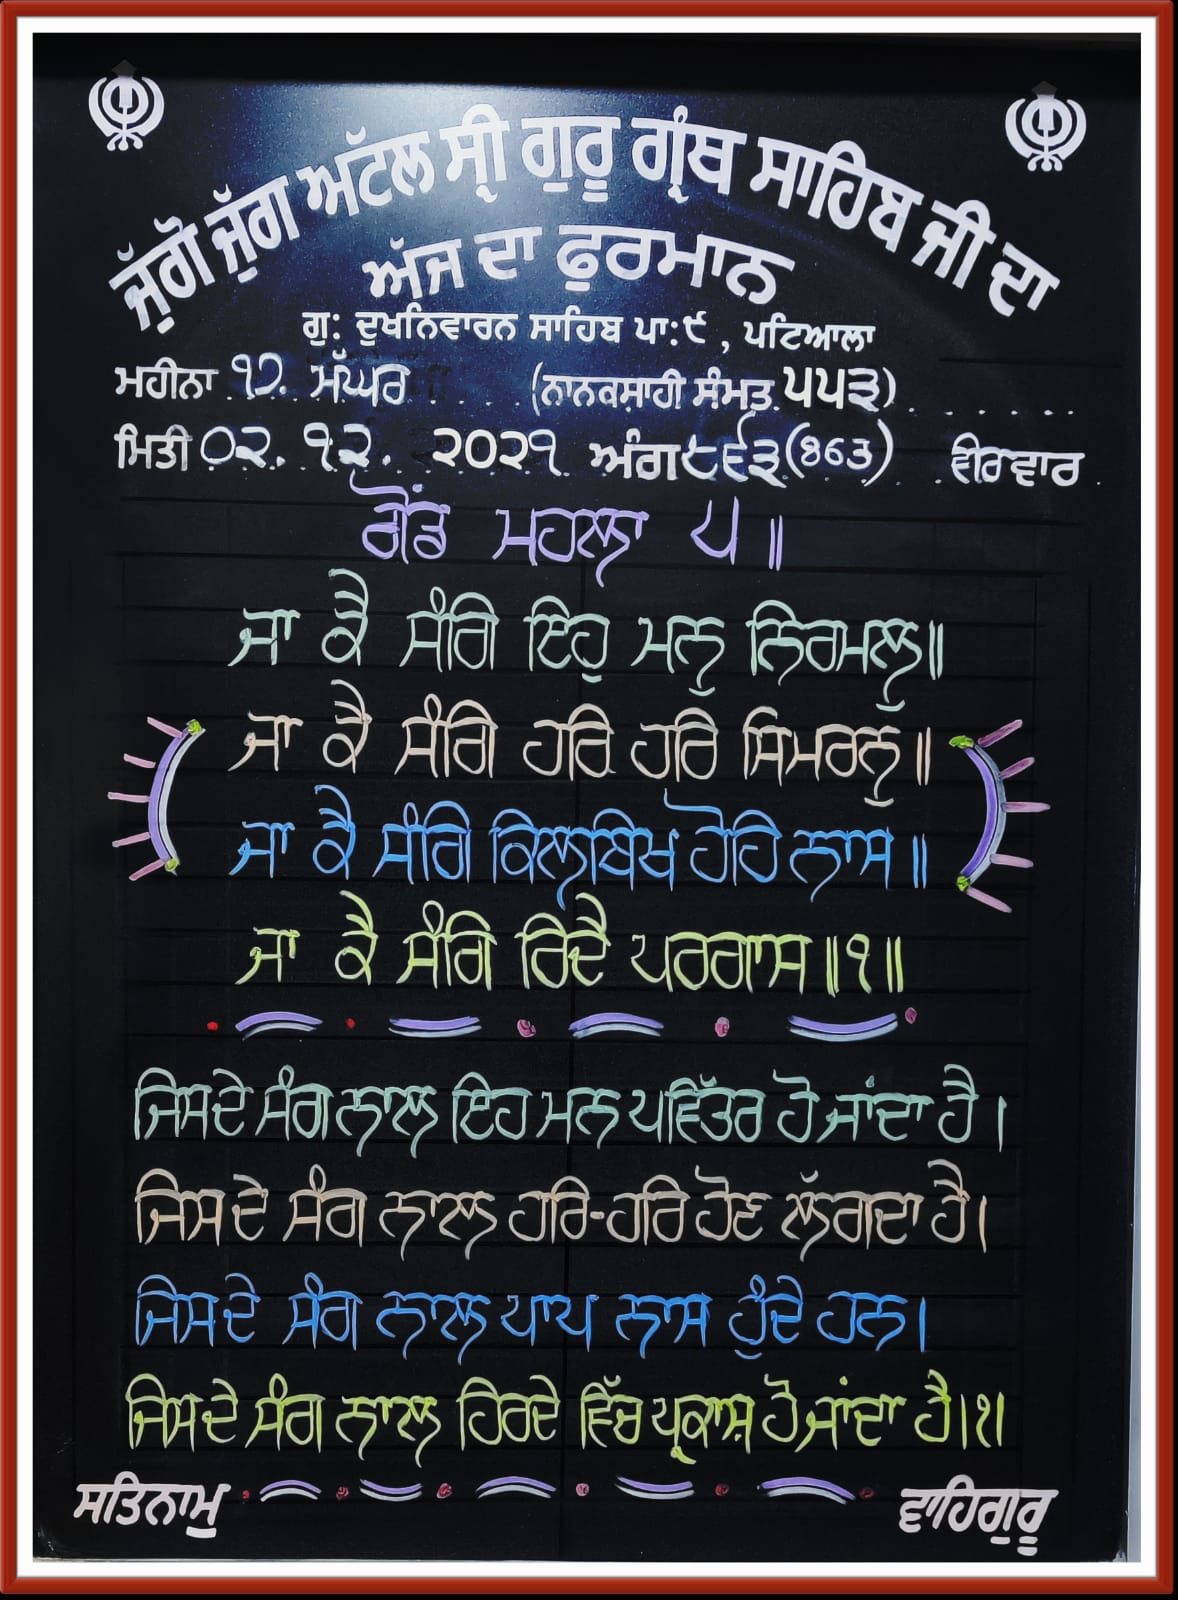 ਜੁੱਗੋ ਜੁੱਗ ਅਟੱਲ ਸ੍ਰੀ ਗੁਰੂ ਗ੍ਰੰਥ ਸਾਹਿਬ ਜੀ ਦਾ
ਅੱਜ ਦਾ ਫੁਰਮਾਨ
ਗੁ: ਦੁਖਨਿਵਾਰਨ ਸਾਹਿਬ ਪਾ:੯, ਪਟਿਆਲਾ
ਮਹੀਨਾ ੧੭. ਮੱਘਰ (ਨਾਨਕਸ਼ਾਹੀ ਸੰਮਤ ੫੫੩)
ਮਿਤੀ ੦੨. ੧੨. ੨੦੨੧ ਅੰਗ ੮੬੩ (863) ਵੀਰਵਾਰ
ਗੋਂਡ ਮਹਲਾ ੫ ॥
ਜਾ ਕੈ ਸੰਗਿ ਇਹੁ ਮਨੁ ਨਿਰਮਲੁ॥
ਜਾ ਕੈ ਸੰਗਿ ਹਰਿ ਹਰਿ ਸਿਮਰਨੁ॥
ਜਾ ਕੈ ਸੰਗਿ ਕਿਲਬਿਖ ਹੋਹਿ ਨਾਸ॥
ਜਾ ਕੈ ਸੰਗਿ ਰਿਦੈ ਪਰਗਾਸ॥੧॥
ਜਿਸਦੇ ਸੰਗ ਨਾਲ ਇਹ ਮਨ ਪਵਿੱਤਰ ਹੋ ਜਾਂਦਾ ਹੈ।
ਜਿਸਦੇ ਸੰਗ ਨਾਲ ਹਰਿ-ਹਰਿ ਹੋਣ ਲੱਗਦਾ ਹੈ।
ਜਿਸਦੇ ਸੰਗ ਨਾਲ ਪਾਪ ਨਾਸ ਹੁੰਦੇ ਹਨ।
ਜਿਸਦੇ ਸੰਗ ਨਾਲ ਹਿਰਦੇ ਵਿੱਚ ਪ੍ਰਕਾਸ਼ ਹੋ ਜਾਂਦਾ ਹੈ।੧।
ਸਤਿਨਾਮੁ ਵਾਹਿਗੁਰੂ